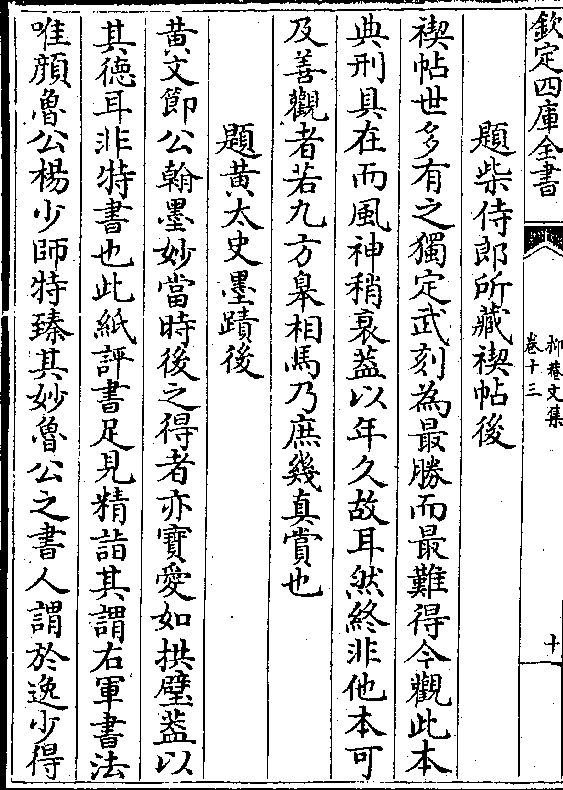 欽定四庫全書
抑菴文集
卷十三
十
題柴侍郎所藏禊帖後
禊帖世多有之獨定武刻為最勝而最難得今觀此本
典刑具在而風神稍衰葢以年久故耳然終非他本可
及善觀者若九方臯相馬乃庶幾真賞也
題黄太史墨蹟後
黄文節公翰墨妙當時後之得者亦寳愛如拱璧葢以
其德耳非特書也此紙評書足見精詣其謂右軍書法
唯顔魯公楊少師特臻其妙魯公之書人謂於逸少得